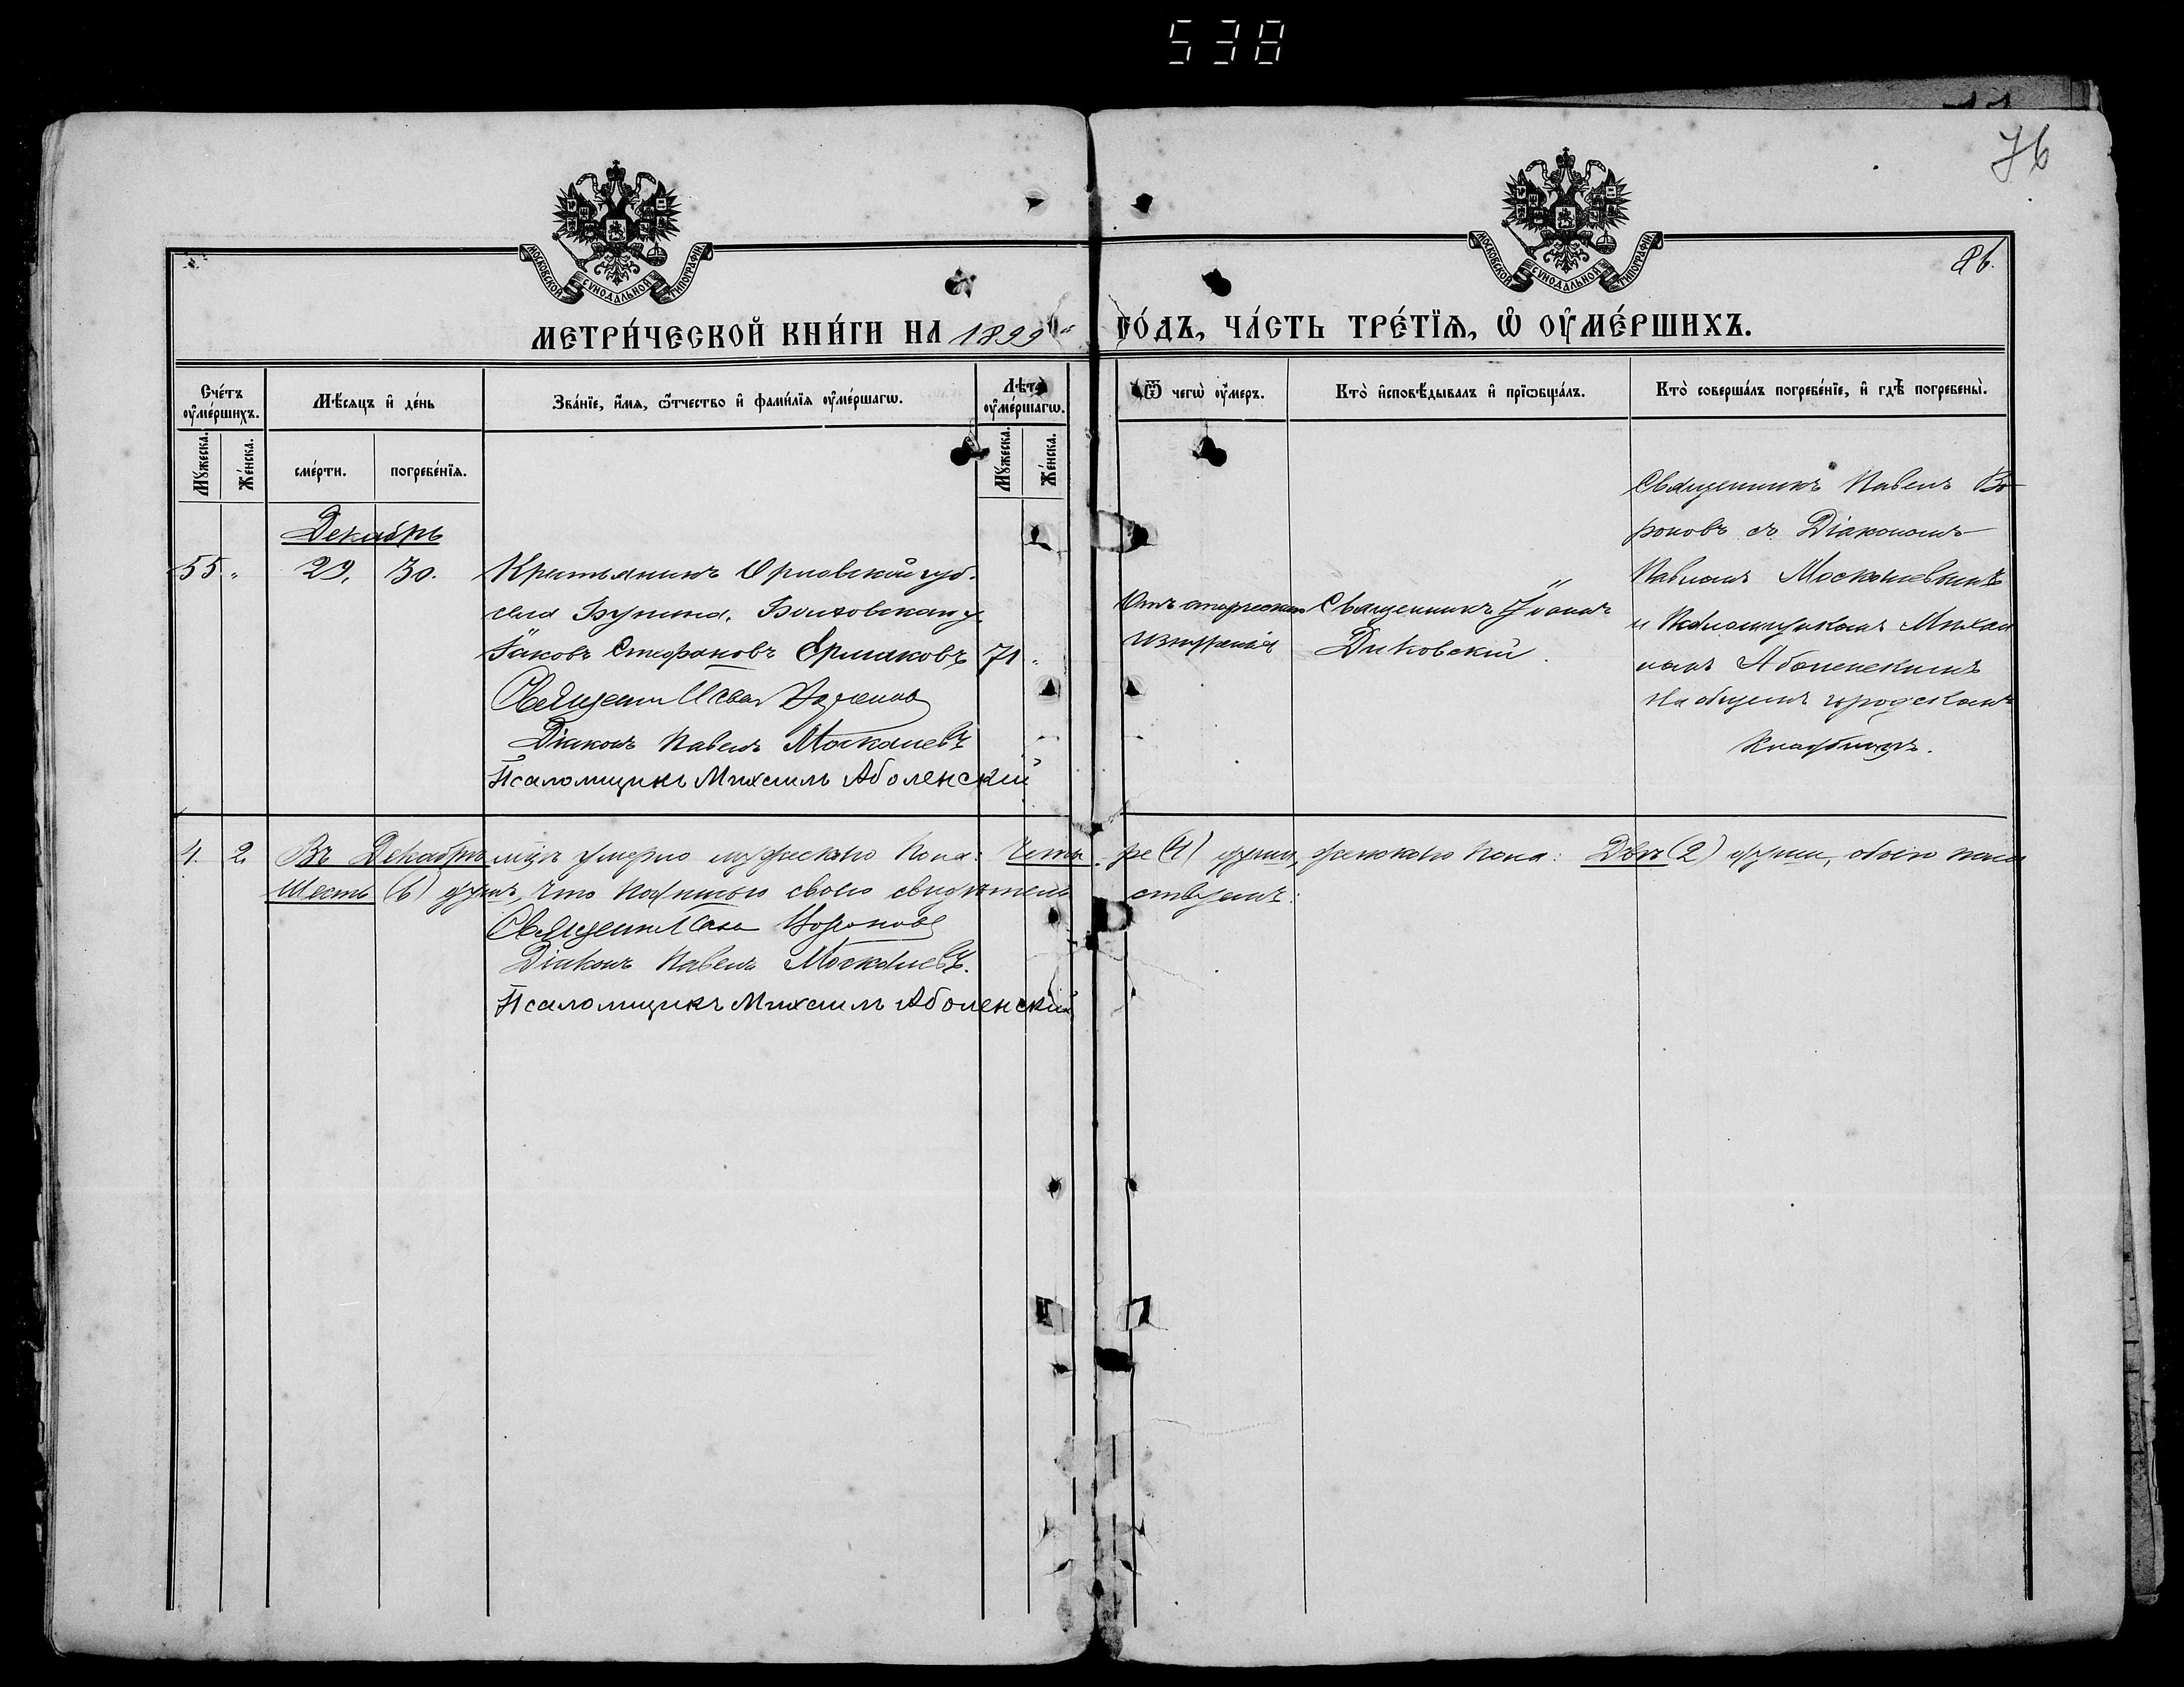 538
76
86.
МОСКОВСКОЙ СѴНОДАЛЬНОЙ ТИПОГРАФІИ
МОСКОВСКОЙ СѴНОДАЛЬНОЙ ТИПОГРАФІИ
МЕТРИ́ЧЕСКОЙ КНИ́ГИ НА 1899 ГО́ДЪ, ЧА́СТЬ ТРЕ́ТЇѦ, Ѡ ОУМЕ́РШИХЪ.
Сче́тъ оуме́ршихъ.
Мꙋ́жеска.
Же́нска.
Мѣ́сѧцъ и де́нь
сме́рти.
погребе́нїѧ.
Зва́нїе, и́мѧ, ѻ҆́тчество и фами́лїѧ оуме́ршагѡ.
Лѣ́та оуме́ршагѡ.
Мꙋ́жеска.
Же́нска.
Ѿ чегѡ̀ оу́меръ.
Кто̀ и҆сповѣ́дывалъ и прїѡбща́лъ.
Кто̀ соверша́лъ погребе́нїе, и гдѣ̀ погребены̀.
Декабрь
55 " 29. 30.
Крестьянинъ Орловской губ.
села Бунина, Болховскаго у.
Іаковъ Стефановъ Ермаковъ 71 "
Священн Павел Воронов
Діаконъ Павелъ Москалевъ
Псаломщикъ Михаилъ Аболенскій
Отъ старческаго
изнуренія
Священникъ Іоаннъ
Диковскій.
Священникъ Павелъ Во-
роновъ съ Діакономъ
Павломъ Москалевымъ
и Псаломщикомъ Михаи
ломъ Аболенскимъ
На общемъ городскомъ
Кладбищѣ.
4. 2. Въ Декабрѣ мцѣ умерло мужескаго пола: четы ре (4) души, женскаго пола: Двѣ (2) души, обоего пола
Шесть (6) душъ, что подписью своею свидѣтель ствуемъ:
Священн Павел Воронов
Діаконъ Павелъ Москалевъ.
Псаломщикъ Михаилъ Аболенскій